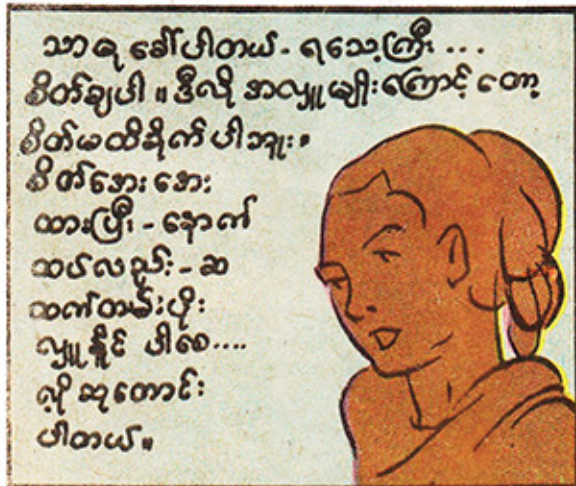 သာဓု ခေါ်ပါတယ် - ရသေ့ကြီး ...
စိတ်ချပါ ။ ဒီလို အလှူမျိုးကြောင့် တော့
စိတ်မထိခိုက်ပါဘူး ။
စိတ်အေးအေး
ထားပြီး - နောက်
ထပ်လည်း - ဆ
ထက်တမ်းပိုး
လှူနိူင် ပါစေ ....
လို့ ဆုတောင်း
ပါတယ် ။